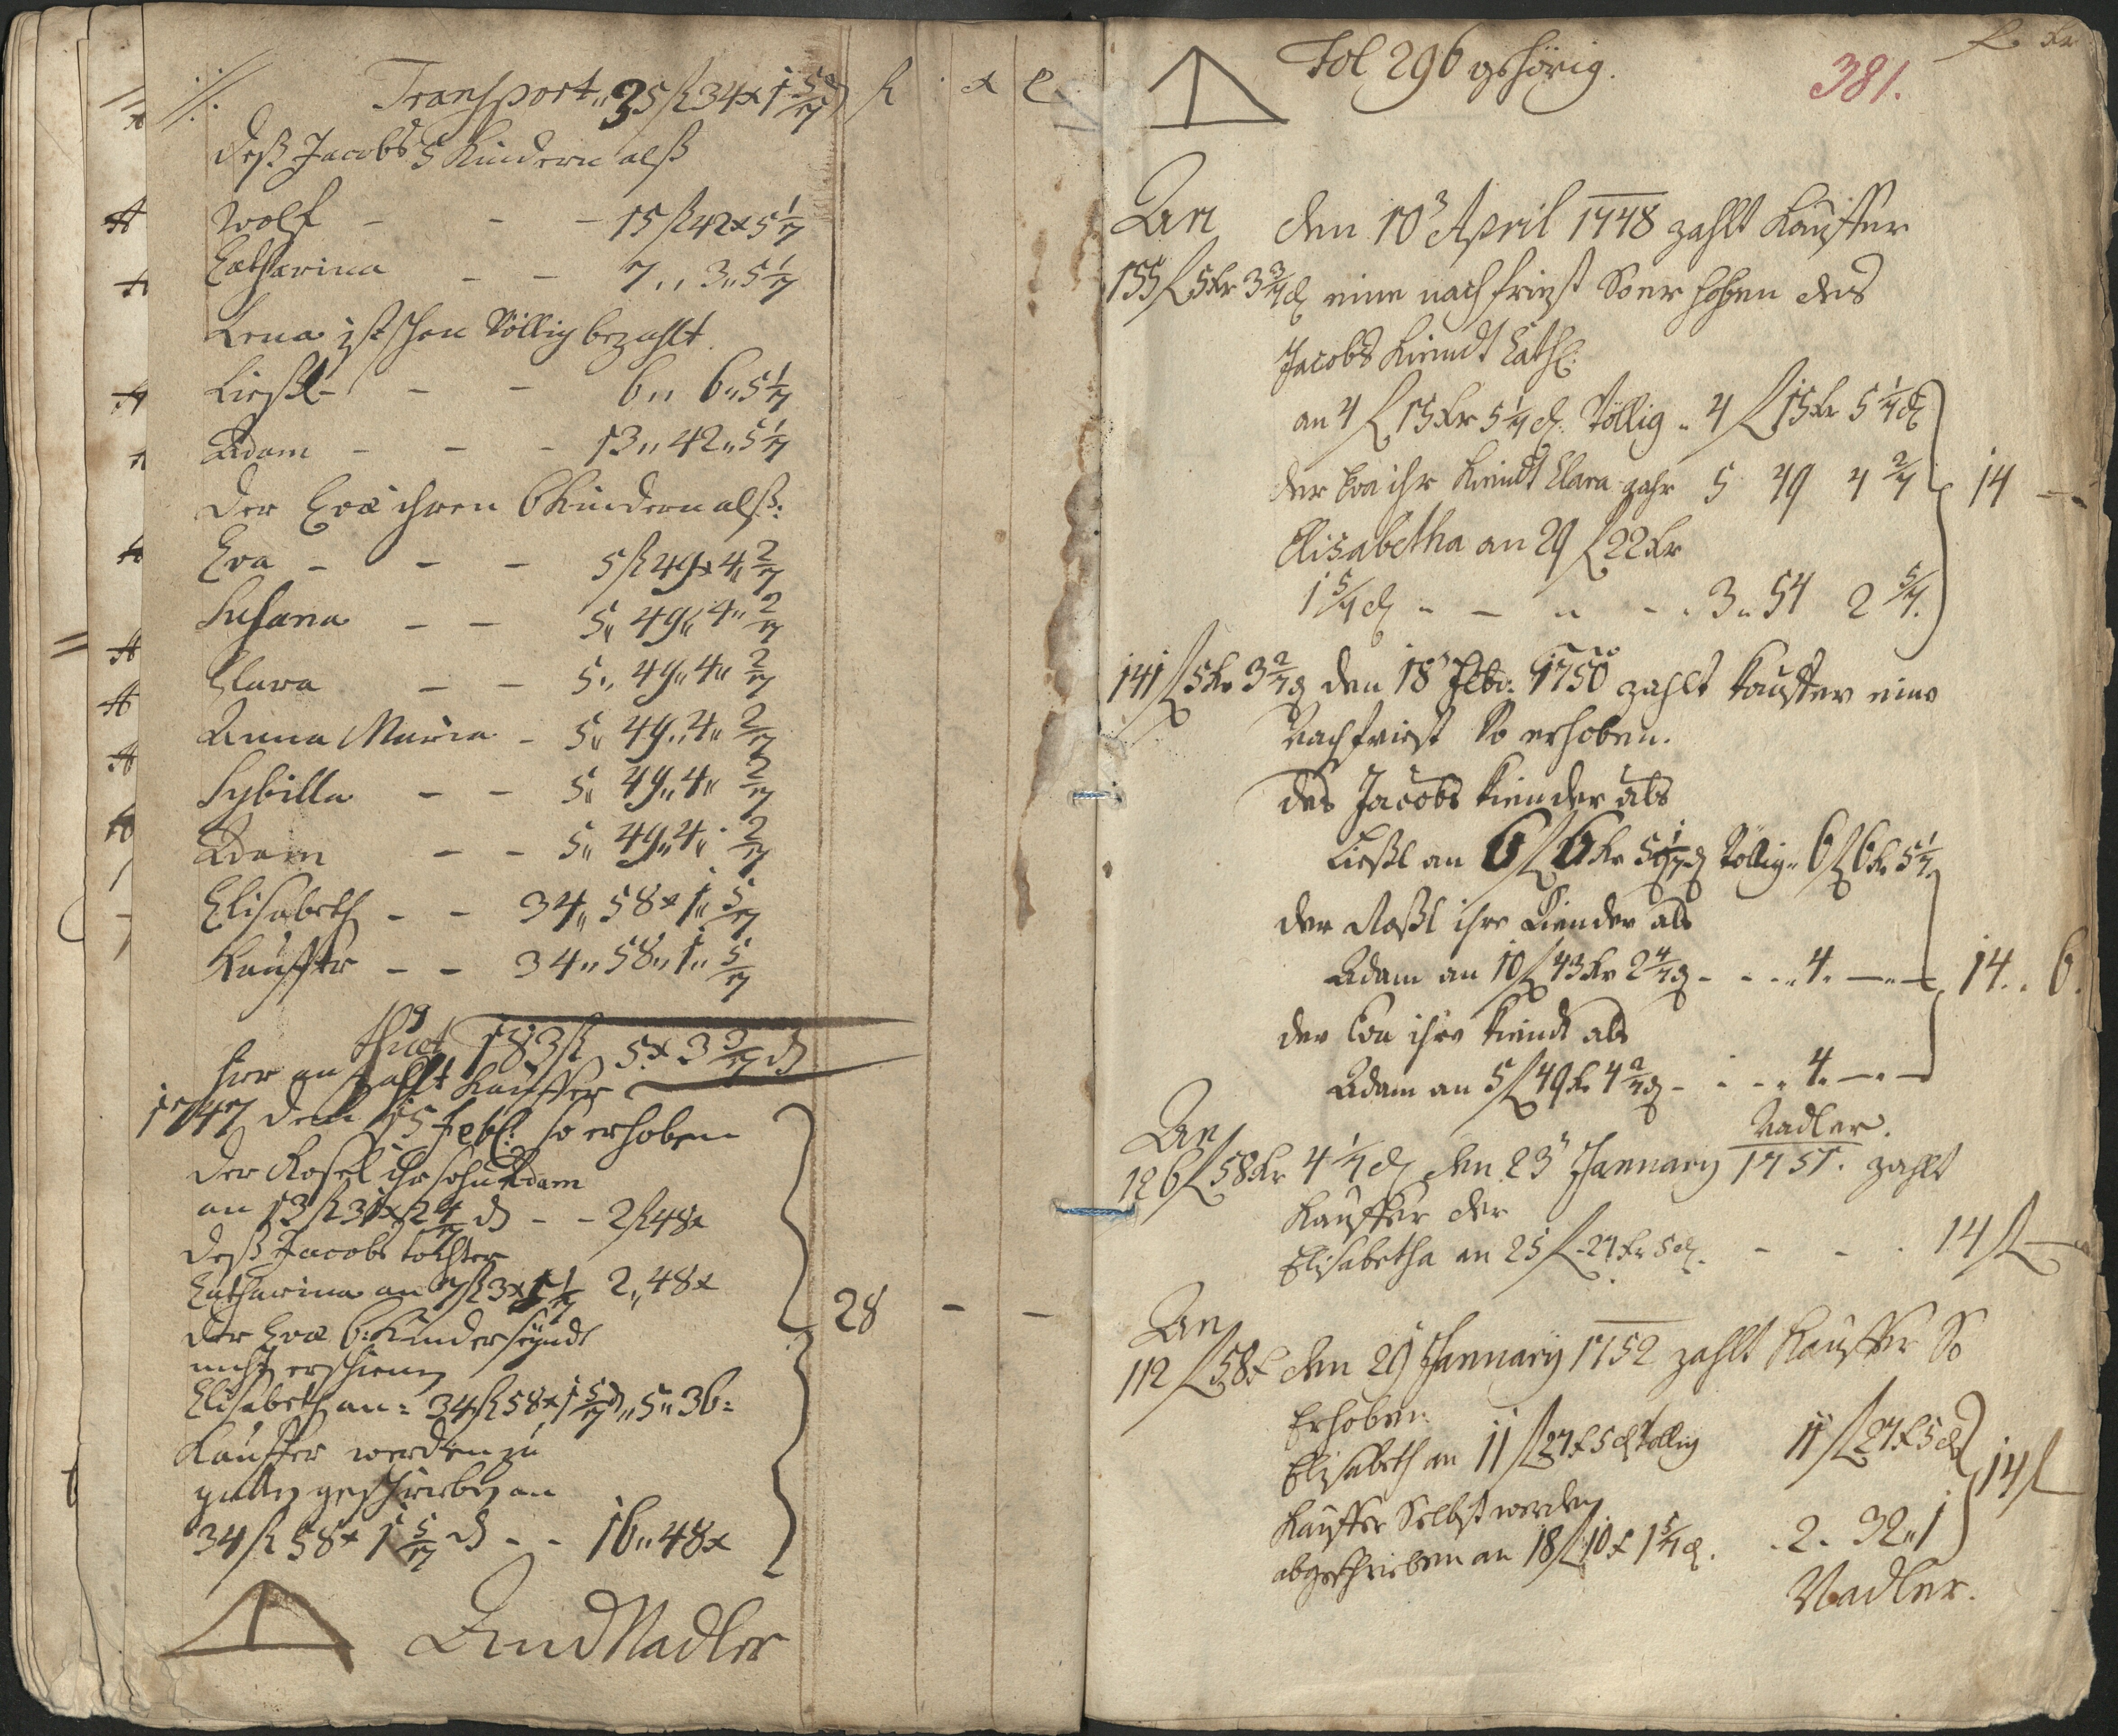 Transport 35 fl 34 x 1 5/7 d fl x d
deß Jacobs 5 Kindern alß
Wolf - - - 15 fl 42 x 5 1/7
Catharina - - 7 ,, 3 ,, 5 1/7
Lena ist schon Völlig bezahlt.
Liesl - - - 6 ,, 6 ,, 5 1/7
Adam - - - 13 ,, 42 ,, 5 1/7
der Eva ihren 6 Kindern alß:
Eva - - - 5 fl 49 x 4 2/7
Susana - - 5 ,, 49 ,, 4 ,, 2/7
Clara - - 5 ,, 49 ,, 4 ,, 2/7
Anna Maria - 5 ,, 49 ,, 4 ,, 2/7
Sybilla - - 5 ,, 49 ,, 4 ,, 2/7
Adam - - 5 ,, 49 ,, 4 ,, 2/7
Elisabeth - - 34 ,, 58 x 1 ,, 5/7
Kauffer - - 34 ,, 58 ,, 1 ,, 5/7
thuet 183 fl 5 x 3 3/7 d
hier an zahlt Kauffer
1747 den 15 Feb: so erhoben
der Rosel ihr sohn Adam
an 13 fl 31 x 2 4/7 d - - 2 fl 48 x
deß Jacobs tochter
Catharina an 7 fl 3 x 5 1/7 2 ,, 48 x
der Eva 6: Kinder seyndt
nicht erschienen
Elisabeth an: 34 fl 58 x 1 5/7 d ,, 5 ,, 36:
Kauffer werden zu
guten geschrieben an
34 fl 58 x 1 5/7 d - - 16 ,, 48 x
28 - -
Nadler
Fol 296 gehörig.
381.
fl Kr
An den 10 April 1748 zahlt Kauffer
155 fl 5 Kr 3 3/7 d eine nachfriest So er hoben des
Jacobs Kiendt Cath:
an 4 fl 15 Kr 5 1/7 d Völlig ,, 4 fl 15 Kr 5 1/7 d
der Eva ihr Kiendt Clara gahr 5 49 4 2/7 14 -
Elisabetha an 29 fl 22 Kr
1 5/7 d - - - - 3 ,, 54 2 5/7.
141 fl 5 Kr 3 2/7 d den 18 Febr: 1750 zahlt Kauffer eine
Nachfriest So erhoben.
des Jacobs Kiender als
Ließl an 6 fl 6 Kr 5 1/7 d Völlig ,, 6 fl 6 Kr 5 1/7
der Roßl ihre Kiender als
Adam an 10 fl 43 Kr 2 4/7 d - - - 4. - - 14 . . 6.
der Eva ihre Kiendt als
Adam an 5 fl 49 Kr 4 2/7 d - - - 4. - -
Nadler.
An
126 fl 58 Kr 4 1/7 d den 23 January 1751. zahlt
Kauffer der
Elisabetha an 25 fl 27 Kr 5 d. - - . 14 fl -
An
112 fl 58 x den 29 January 1752 zahlt Kauffer So
Erhoben
Elisabeth an 11 fl 27 x 5 d Völlig 11 fl 27 x 5 d
14 fl
Kauffer Selbst werden
abgeschrieben an 18 fl 10 x 1 5/7 d. . 2 . 32 ,, 1
Nadler.